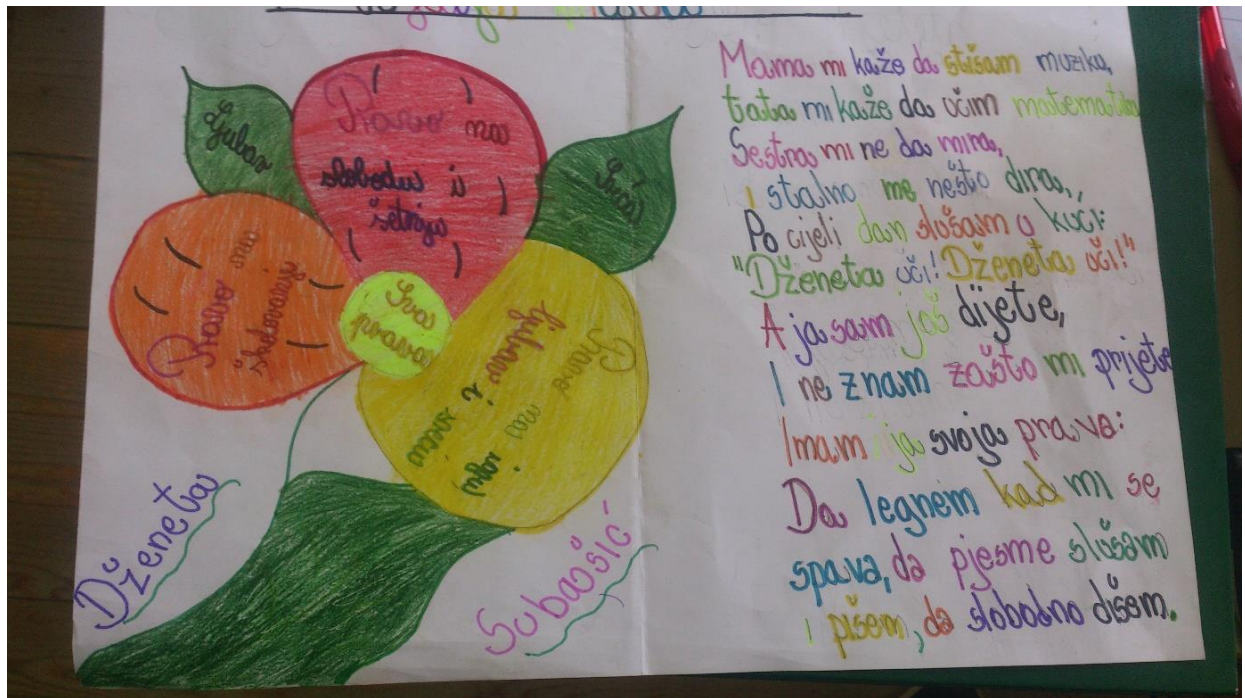 Ljubav
Pravo na
slobodu i
šetnju
Pravo na
školovanje
Pravo na igru
ljubav i sreću
Dženeta
Subašić
Mama mi kaže da stišam muziku,
tata mi kaže da učim matematiku
Sestra mi ne da mira,
i stalno me nešto dira,,
Po cijeli dan slušam u kući:
"Dženeta uči! Dženeta uči!"
A ja sam još dijete,
I ne znam zašto mi prijete
Imam i ja svoja prava:
Da legnem kad mi se
spava, da pjesme slušam
i pišem, da slobodno dišem.